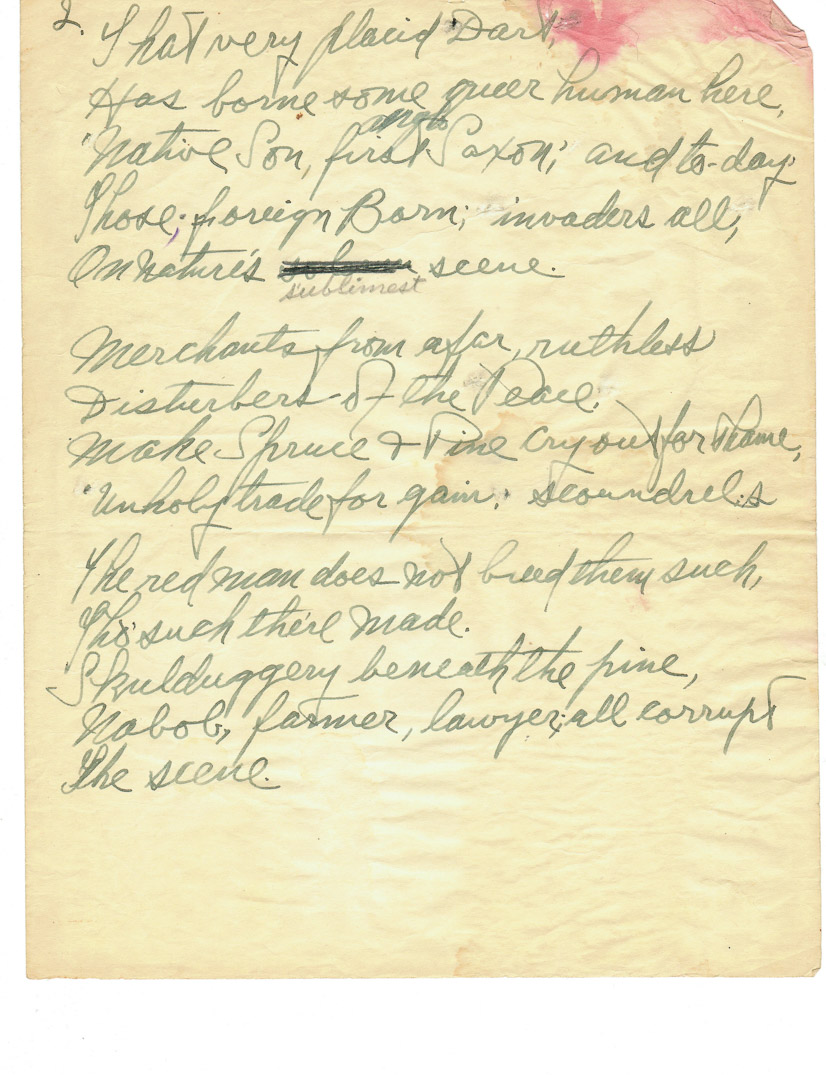 2.
That very placid Dart,
Has borne some queer human here,
anglo
"Native Son, first Saxon; and to-day
Those foreign Born; invaders all,
On nature's scene.
sublimest
Merchants from afar, ruthless
Disturbers of the Peace.
Make Spruce & Pine cry out for shame,
"Unholy trade for gain; scoundrels
The red man does not breed them such,
Tho' such there made.
Skulduggery beneath the pine,
Nabob, farmer, lawyer, all corrupt
The scene.